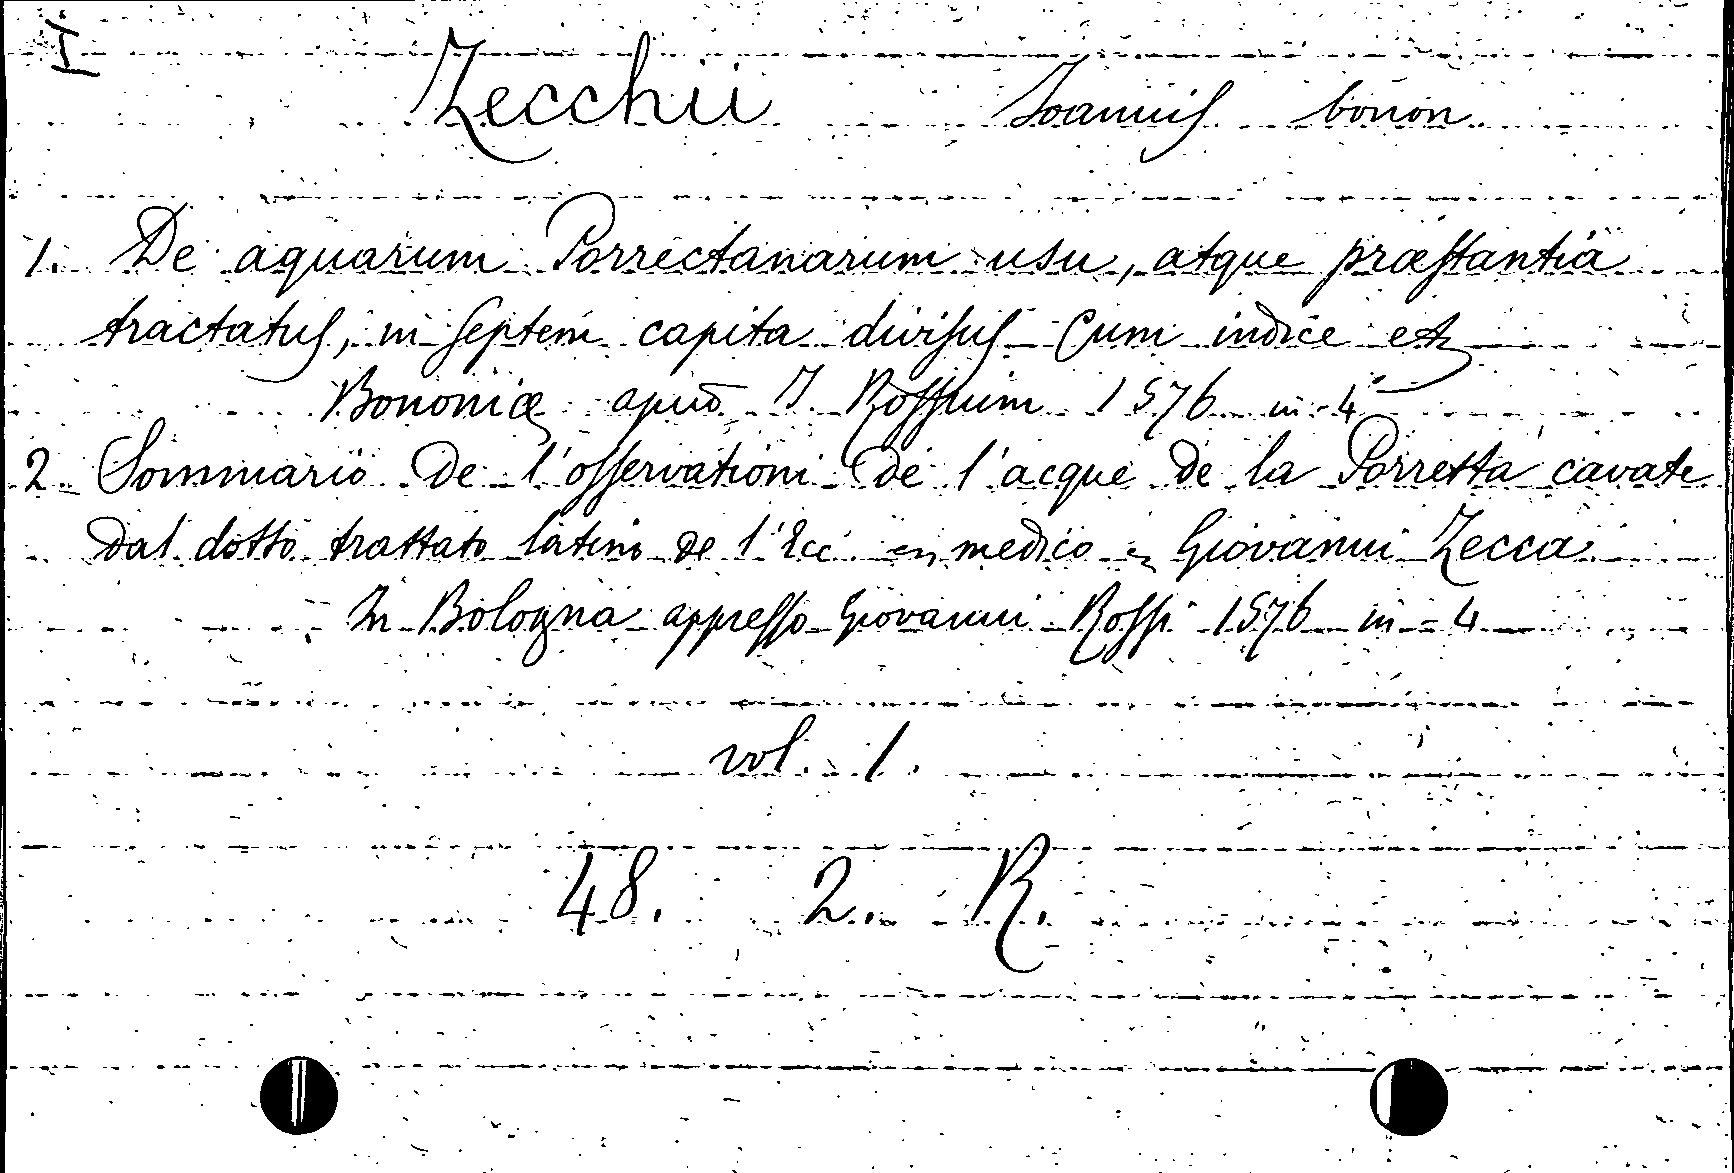 I
Zecchii Joannis bonon.
1. De aquarum Porrectanarum usu, atque præstantia
tractatus, in septem capita divisus Cum indice etz
Bononiæ apud J. Rossium 1576 in-4°
2 Sommario de l'osservationi de l'acque de la Porretta cavate
dal dotto trattato latino de l'Ecc medico Giovanni Zecca
In Bologna appresso Giovanni Rossi 1576 in-4
vol. 1.
48. 2. R.